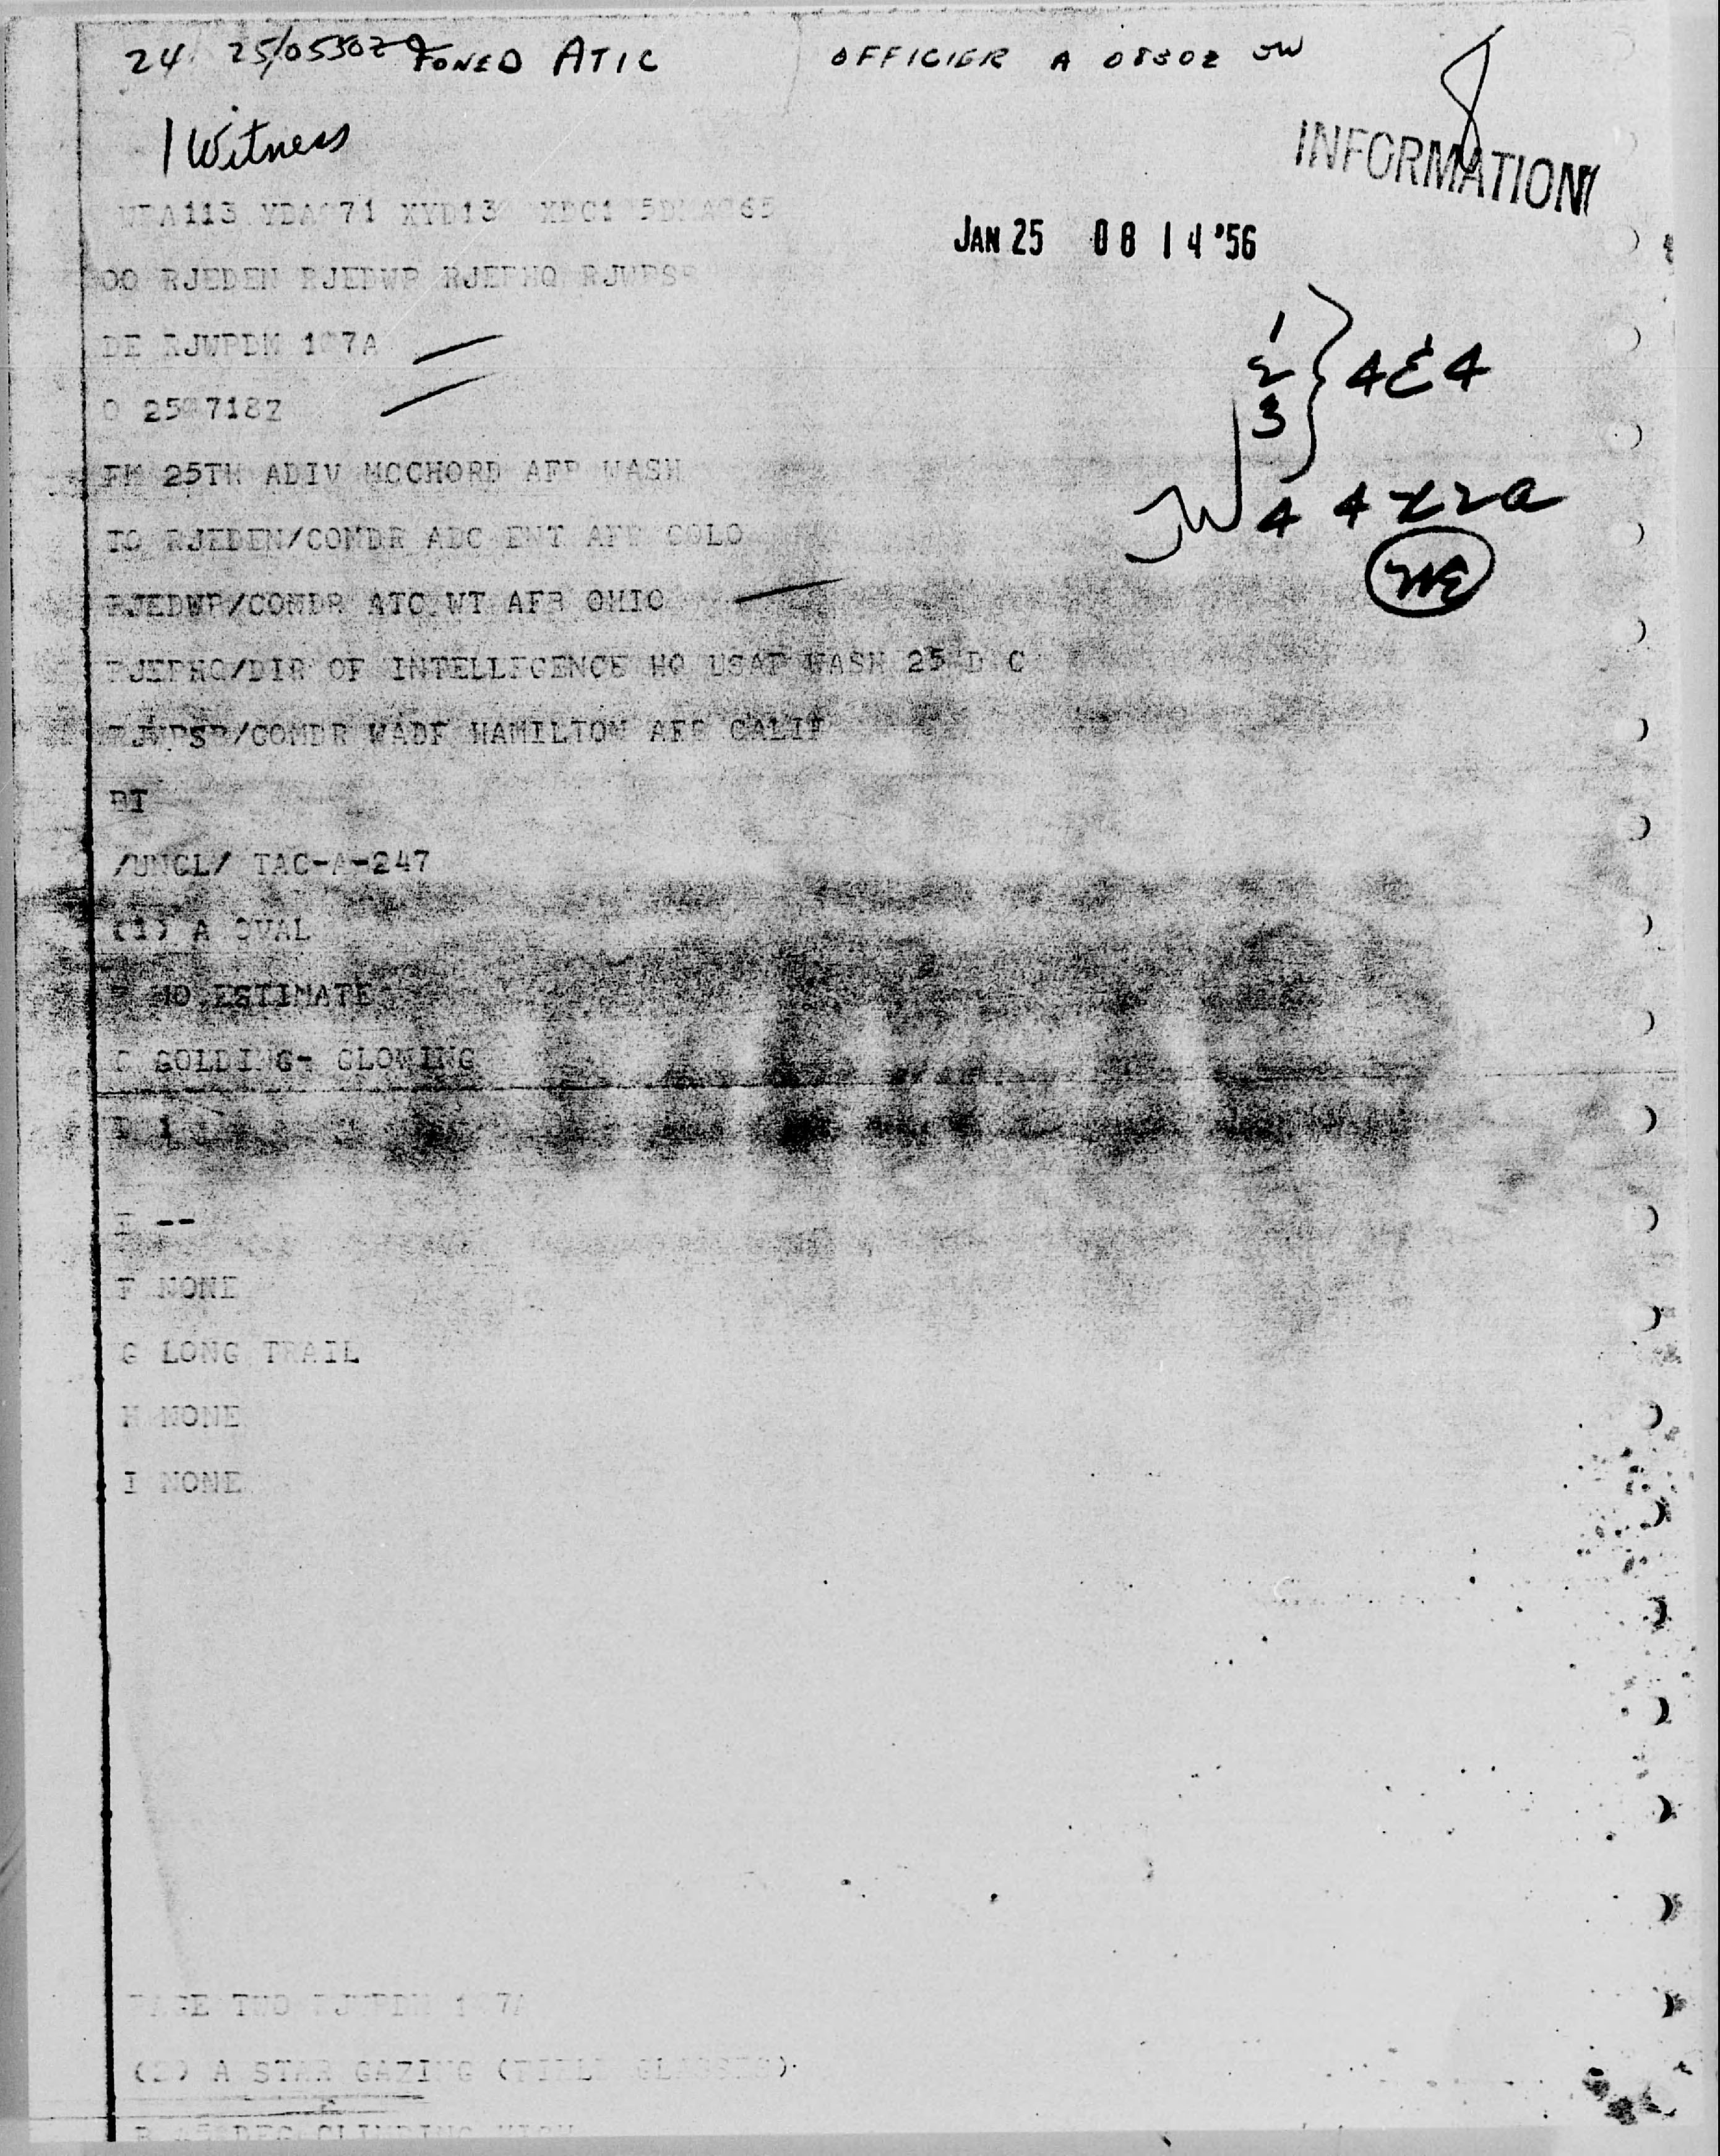 24 25/0530Z FONED ATIC OFFICIER A 0830Z JW
1 Witness
INFORMATION
JAN 25 08 14 '56
OO RJEDEN RJEDWP RJEPHQ
DE RJWPDM 1 7A
1
2 } 4E4
3
O 25 718Z
FM 25TH ADIV MCCHORD AFB WASH
JW 4
TO RJEDEN/COMDR ADC ENT AFB COLO
RJEDWP/COMDR ATC WT AFB OHIO
RJEPHQ/DIR OF INTELLIGENCE HQ USAF WASH 25 D C
RJWPSB/COMDR WADF HAMILTON AFB CALIF
BT
/UNCL/ TAC-A-247
(1) A OVAL
B NO ESTIMATE
C GOLDING- GLOWING
D 1
E --
F NONE
G LONG TRAIL
H NONE
I NONE
PAGE TWO RJWPDM 1 7A
(2) A STAR GAZING (FIELD GLASSES)
B 45 DEG CLIMBING HIGH